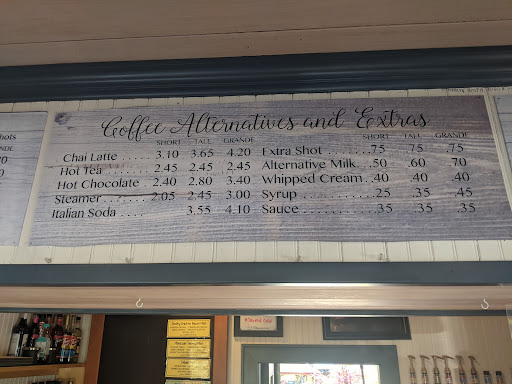 Coffee Alternatives and Extras
SHORT TALL GRANDE
Chai Latte .... 3.10 3.65 4.20
Hot Tea ........ 2.45 2.45 2.45
Hot Chocolate . 2.40 2.80 3.40
Steamer ....... 2.05 2.45 3.00
Italian Soda .... 3.55 4.10
SHORT TALL GRANDE
Extra Shot ........ .75 .75 .75
Alternative Milk. .50 .60 .70
Whipped Cream. .40 .40 .40
Syrup ............ .25 .35 .45
Sauce ............ .35 .35 .35